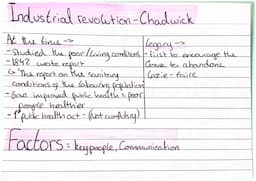 Industrial revolution - Chadwick
At the time ->
- Studied the poor/living conditions
- 1842 wrote report
↳ 'The report on the sanitary
conditions of the labouring population
- Said improved public health = poor
people healthier
- 1st public health act - (Not compulsory)
Legacy ->
- First to encourage the
Gove to abandone
Lazie - faire
Factors: key people, Communication